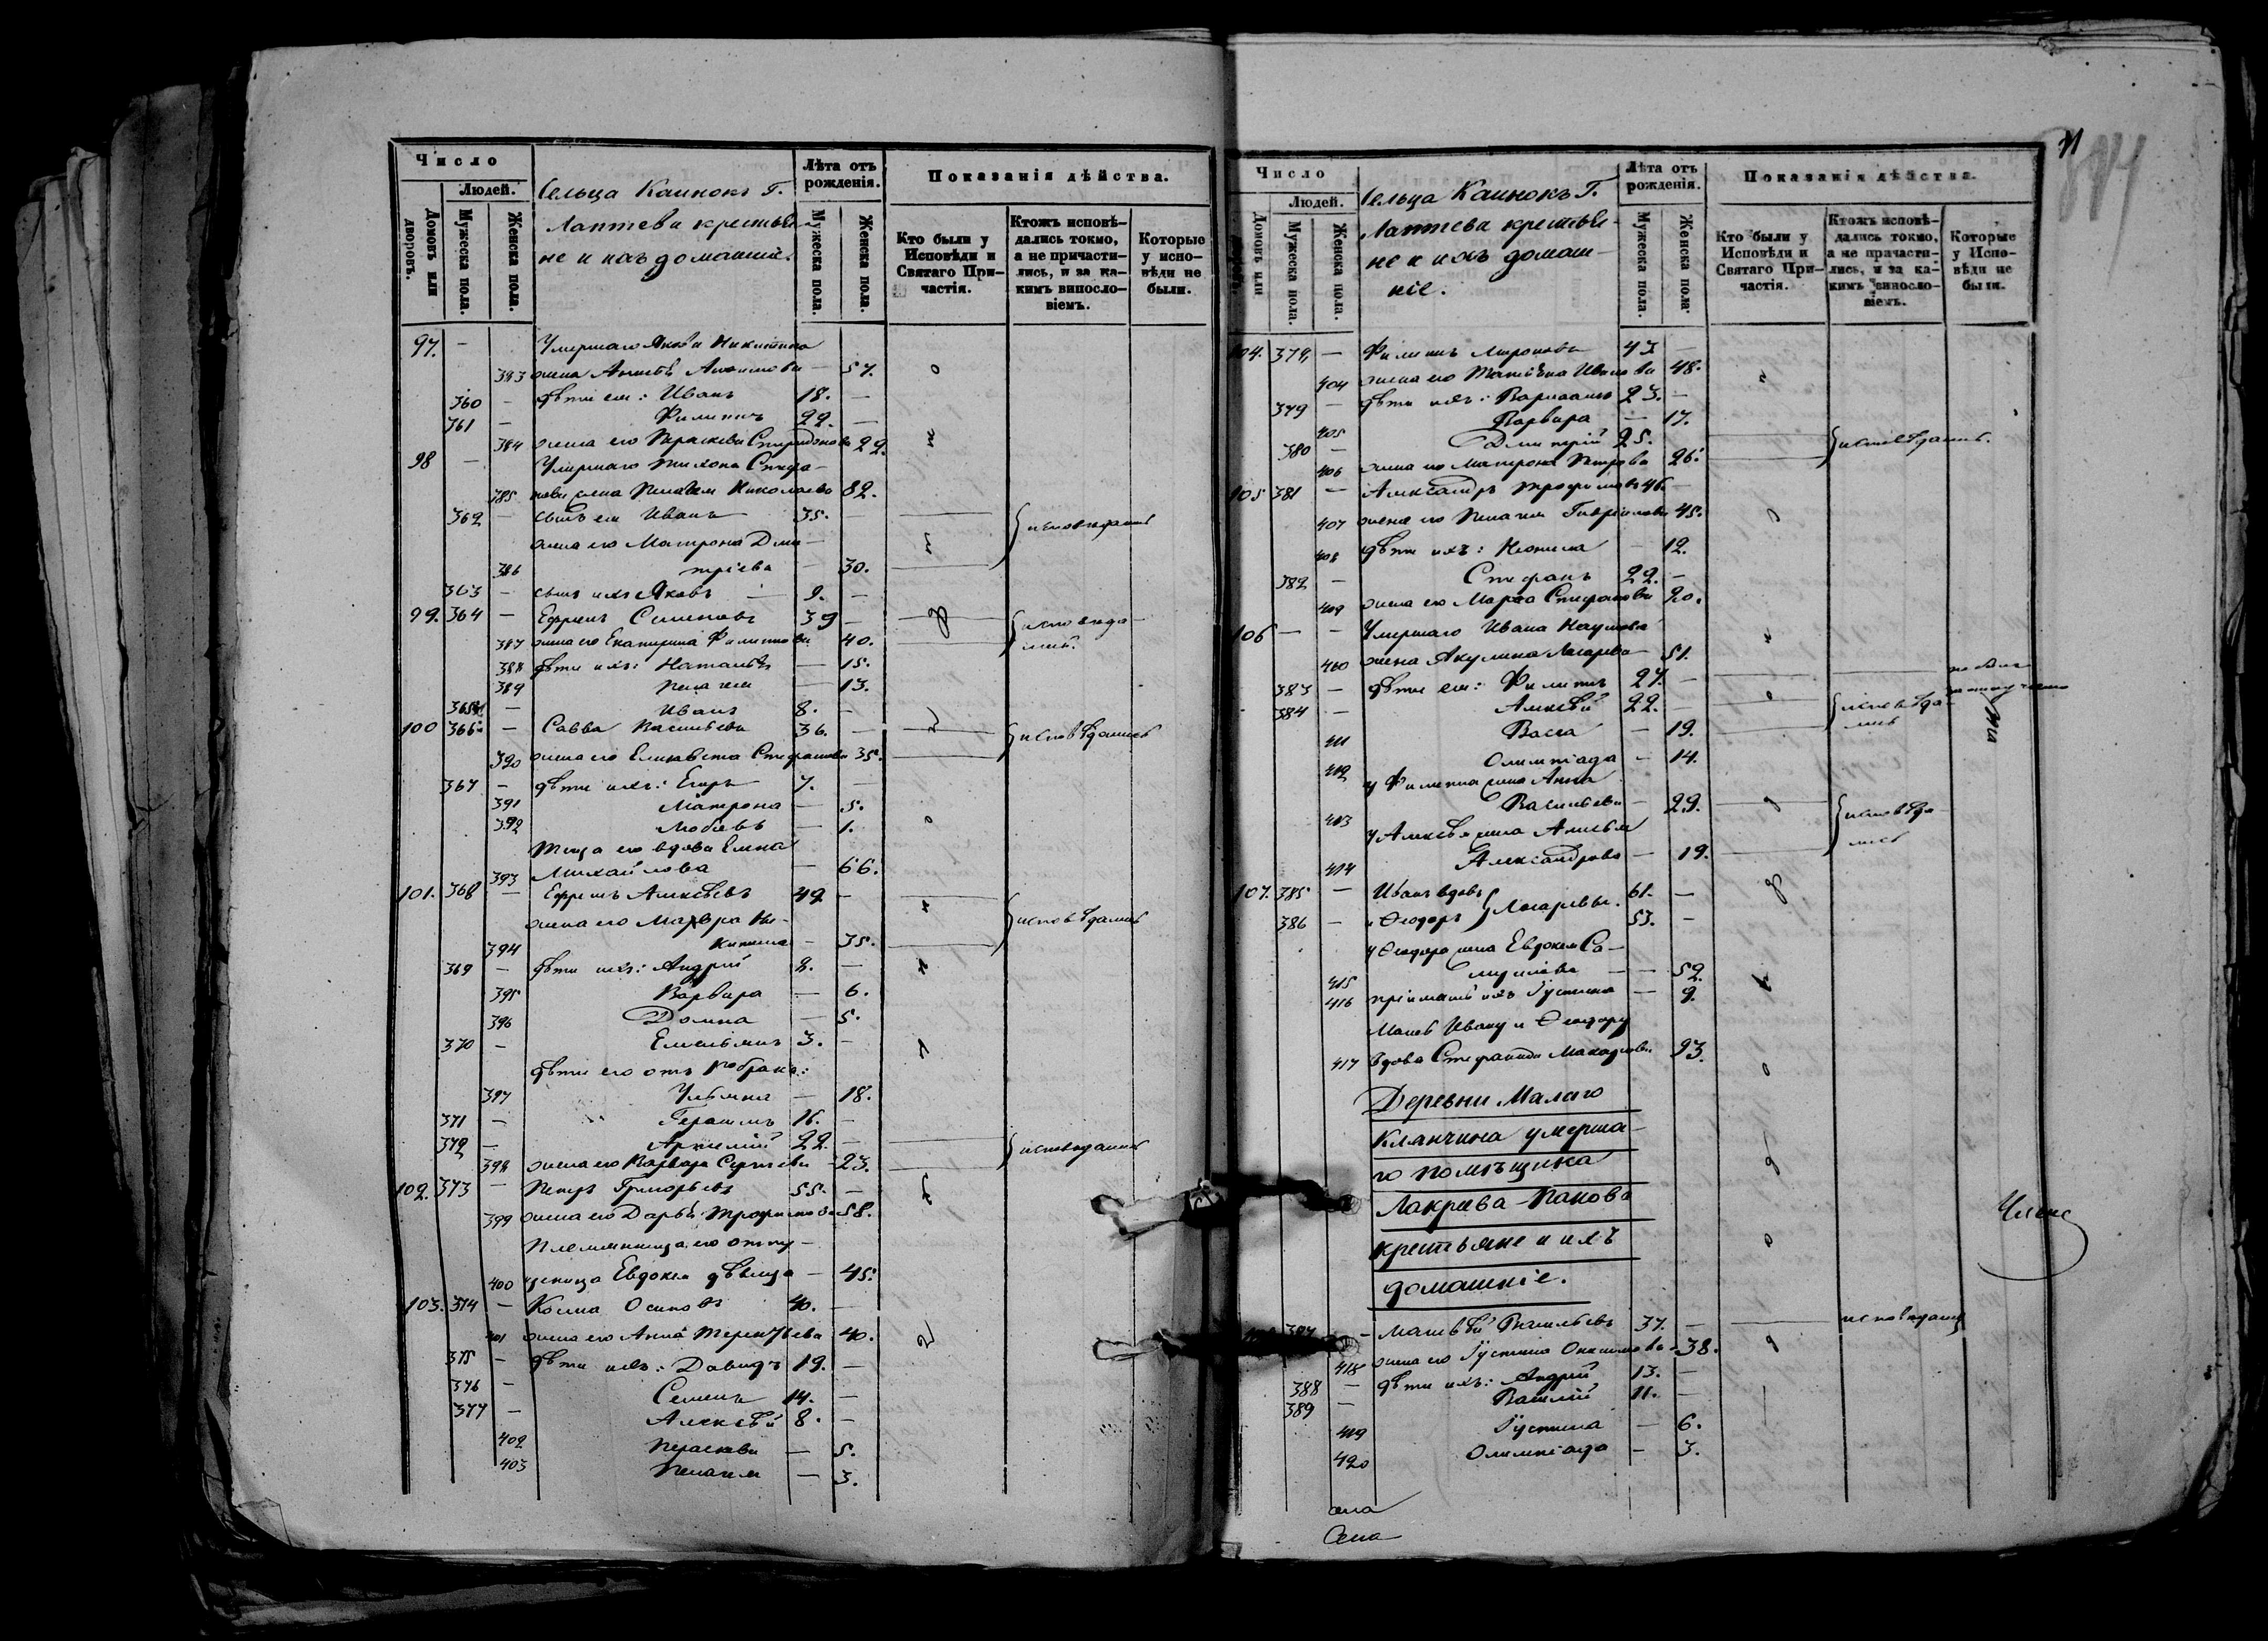 Число
Людей.
Домовъ или дворовъ.
Мужеска пола.
Женска пола.
Сельца Каинокъ Г.
Лаптева крестья-
не и ихъ домашніе.
Лѣта отъ рожденія.
Мужеска пола.
Женска пола.
Показанія дѣйства.
Кто были у Исповѣди и Святаго При-частія.
Ктожъ исповѣ-дались токмо, а не причасти-лись, и за ка-кимъ винносло-віемъ.
Которые у испо-вѣди не были.
97. — Умершаго Якова Никитина
383 жена Анисья — 57.
360 — дѣти ея: Иванъ 18. —
361 — Филиппъ 22. —
384 жена его Параскева Спиридонова 22.
98 — Умершаго Тихона Стефа-
385 нова жена Пелагея Николаева 82.
362 — сынъ ея Иванъ 35. исповѣдались
жена его Матрона Дми-
386 тріева — 30.
363 — сынъ ихъ Яковъ 9. —
99. 364 — Ефремъ Семеновъ 39 — исповѣда-
387 жена его Екатерина Филиппова 40. лись.
388 дѣти ихъ: Наталья — 15.
389 Пелагея — 13.
365 — Иванъ 8. —
100 366 — Савва Васильевъ 36. — исповѣдались
390 жена его Елисавета Стефанова 35.
367 — дѣти ихъ: Егоръ 7. —
391 Матрона — 5.
392 Любовь — 1.
Теща его вдова Елена
393 Михайлова — 66.
101. 368 — Ефремъ Алексѣевъ 42 — исповѣдались
жена его Мавра Ни-
394 китина — 35.
369 — дѣти ихъ: Андрей 8. —
395 Варвара — 6.
396 Домна — 5.
370 — Емельянъ 3. —
дѣти его отъ 1го брака:
397 Ульяна — 18.
371 — Герасимъ 16. —
372 — Артемій 22. — исповѣдались
398 жена его Варвара Сергѣева — 23.
102. 373 — Петръ Григорьевъ 55. —
399 жена его Дарья Трофимова 58.
Племянница его отпу-
400 щеница Евдокія дѣвица — 45.
103. 374 — Косма Осиповъ 40. —
401 жена его Анна Терентьева 40.
375 — дѣти ихъ: Давидъ 19. —
376 — Семенъ 14. —
377 — Алексѣй 8. —
402 Параскева — 5.
403 Пелагея — 3.
Число
Людей.
Домовъ или
Мужеска пола.
Женска пола.
Сельца Каинокъ Г.
Лаптева крестья-
не и ихъ домаш-
ніе.
Лѣта отъ рожденія.
Мужеска пола.
Женска пола.
Показанія дѣйства.
Кто были у Исповѣди и Святаго При-частія.
Ктожъ исповѣ-дались токмо, а не причасти-лись, и за ка-кимъ винносло-віемъ.
Которые у Испо-вѣди не были.
104. 378 — Филиппъ Мироновъ 47 —
404 жена его Татьяна Иванова 48.
379 — дѣти ихъ: Варлаамъ 23. —
405 Варвара — 17.
380 — Дмитрій 25. исповѣдались.
406 жена его Матрона Петрова 26.
105 381 — Александръ Трофимовъ 46. —
407 жена его Пелагея Гавріилова 45.
408 дѣти ихъ: Неонила — 12.
382 — Стефанъ 22. —
409 жена его Марѳа Стефанова 20.
106 — — Умершаго Ивана Наумова
410 жена Акулина Лазарева 51.
383 — дѣти ея: Филиппъ 27. —
384 — Алексѣй 22. — исповѣда-
411 Васса — 19. лись
412 Олимпіада — 14.
у Филиппа жена Анна
413 Васильева — 29. исповѣда
у Алексѣя жена Анисья лись
414 Александрова — 19.
107. 385 — Иванъ вдовъ 61. —
386 — и Ѳеодоръ } Лазаревы. 53. —
у Ѳеодора жена Евдокія Са-
415 муилова — — 52.
416 пріемышъ ихъ Іустина — 9.
Мать Ивану и Ѳеодору
417 вдова Стефанида Макарова 93.
Деревни Малаго
Клянчина умерша-
го помѣщика
Лакрева-Попова
крестьяне и ихъ
домашніе.
Члене
387 — Матвѣй Васильевъ 37. — исповѣдался
418 жена его Іустина Онисимова — 38.
388 — дѣти ихъ: Андрей 13. —
389 — Василій 11. —
419 Іустина — 6.
420 Олимпіада — 3.